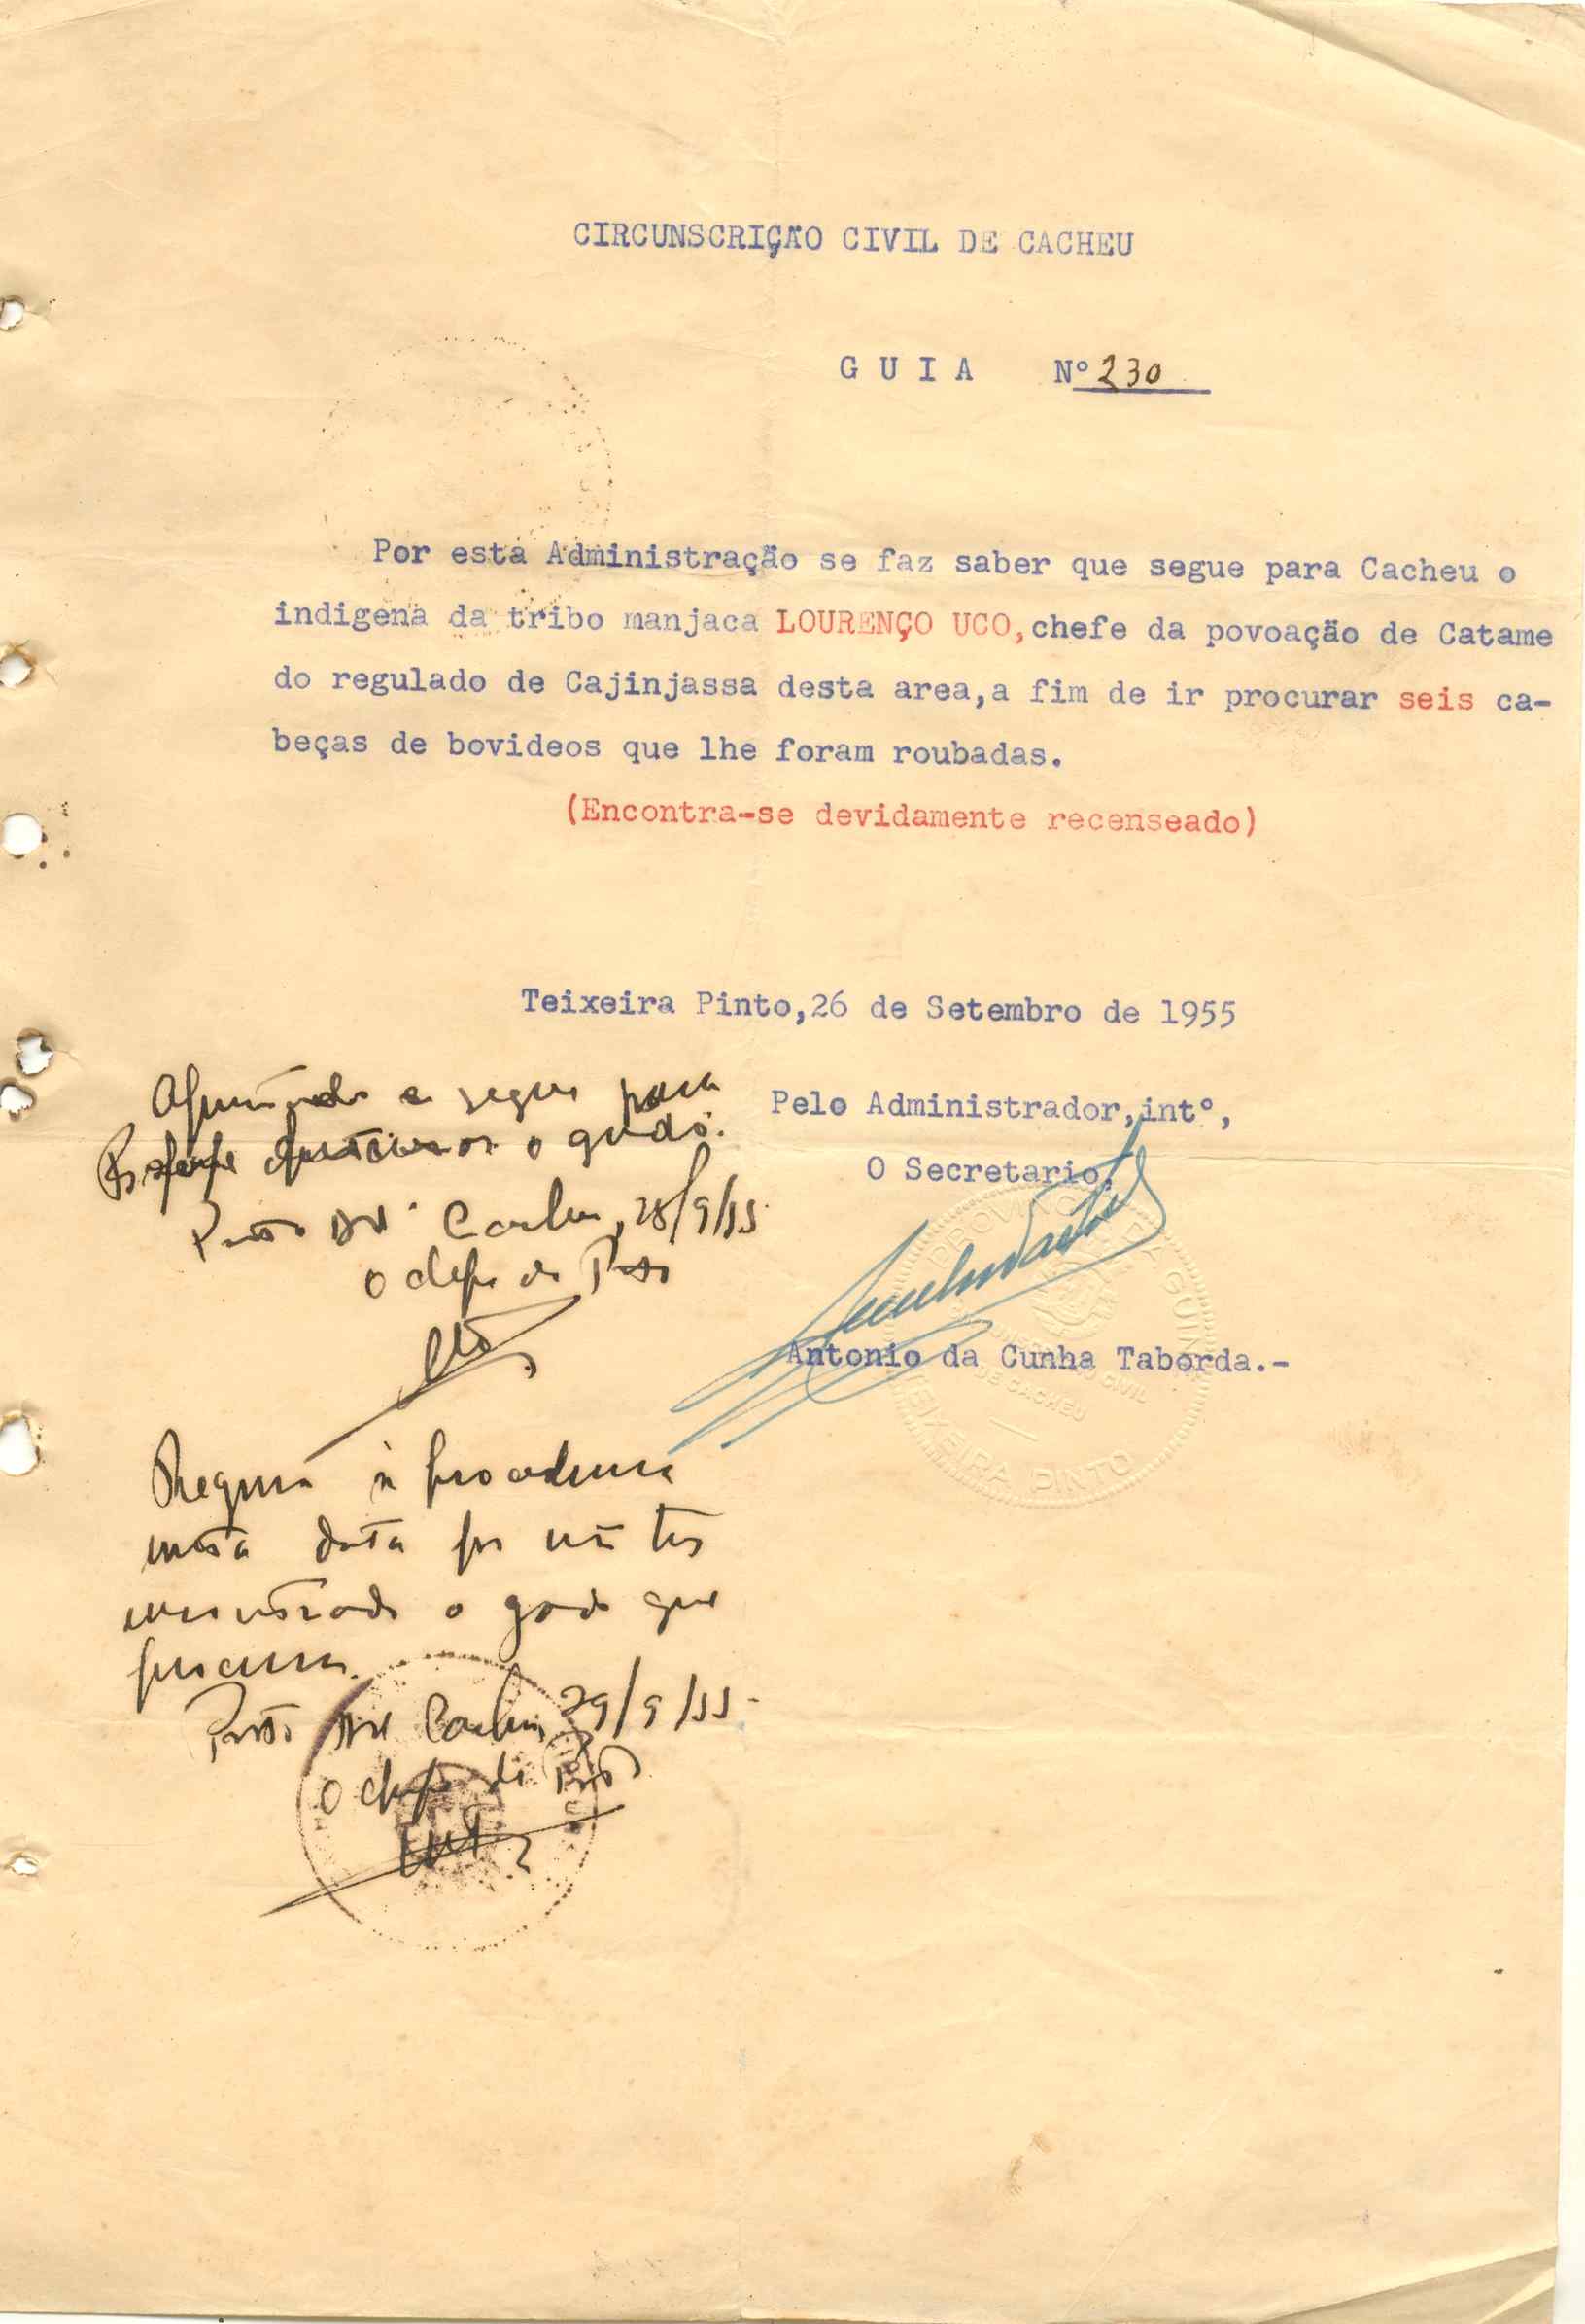 CIRCUNSCRIÇÃO CIVIL DE CACHEU
G U I A Nº 230
Por esta Administração se faz saber que segue para Cacheu o
indigena da tribo manjaca LOURENÇO UCO, chefe da povoação de Catame
do regulado de Cajinjassa desta area, a fim de ir procurar seis ca-
beças de bovideos que lhe foram roubadas.
(Encontra-se devidamente recenseado)
Teixeira Pinto, 26 de Setembro de 1955
Pelo Administrador, intº,
O Secretario,
Antonio da Cunha Taborda.-
PROVINCIA DA GUINÉ
CIVIL
DE CACHEU
TEIXEIRA PINTO
e segue para
o gado.
Posto Cacheu, 28/9/55
O chefe do Posto
à procedencia
nesta data por não ter
encontrado o gado que
procura.
Posto Cacheu 29/9/55
O chefe do Posto